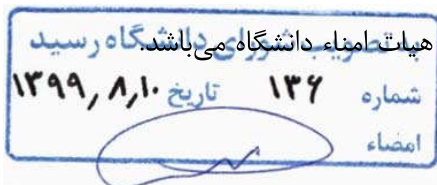 هیات امناء دانشگاه می‌باشد.
به تصویب شورای دانشگاه رسید
شماره ۱۳۶ تاریخ ۱۳۹۹٫۸٫۱۰
امضاء